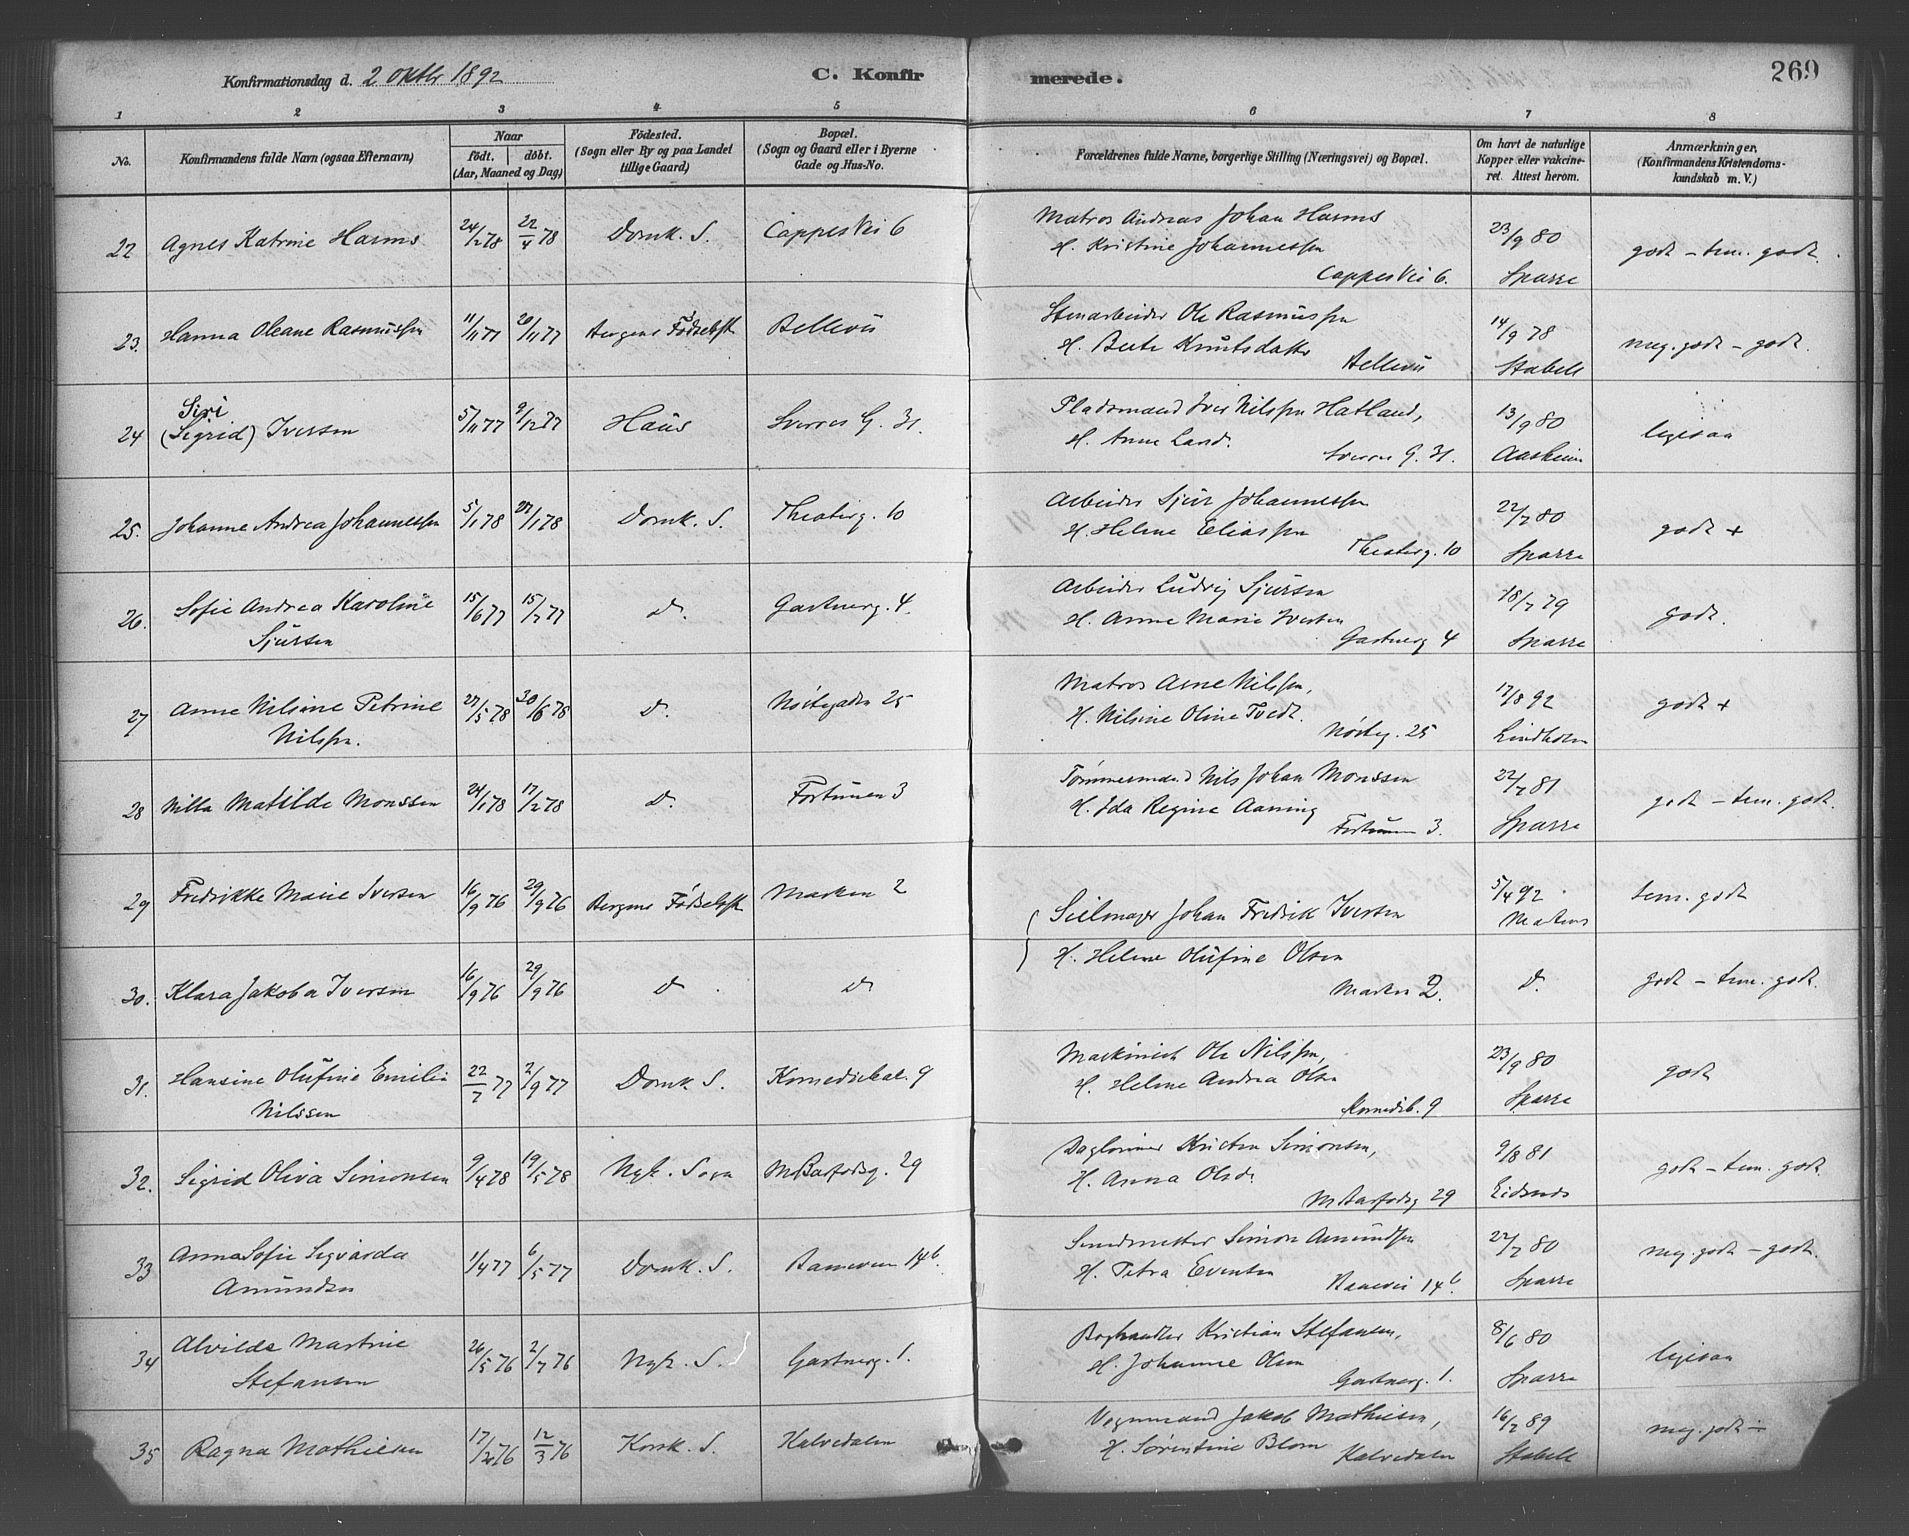 Konfirmationsdag d. 2 Oktbr 1892
C. Konfir
merede.
269
1 2 3 4 5 6 7 8
No.
Konfirmandens fulde Navn (ogsaa Efternavn)
Naar
födt. döbt.
(Aar, Maaned og Dag)
Födested.
(Sogn eller By og paa Landet
tillige Gaard)
Bopæl.
(Sogn og Gaard eller i Byerne
Gade og Hus-No.
Forældrenes fulde Navne, borgerlige Stilling (Næringsvei) og Bopæl.
Om havt de naturlige
Kopper eller vakcine-
ret. Attest herom.
Anmærkninger,
(Konfirmandens Kristendoms-
kundskab m. V.)
22 Agnes Katrine Harms 24/2 78 22/4 78 Domk. S. Cappes Vei 6
Matros Andreas Johan Harms
H. Kristine Johannessen
Cappes Vei 6.
23/9 80
Sparre
godt – tem. godt.
23. Hanna Oleane Rasmussen 11/11 77 20/11 77 Bergens Födselsst Bellevü
Stenarbeider Ole Rasmussen
H. Berte Knutsdatter
Bellevü
14/9 78
Stabell
meg. godt – godt.
24 Siri
(Sigrid) Iversen 5/11 77 9/12 77 Haus Sverres G. 31.
Pladsmand Iver Nilssen Hatland,
H. Anne Land.
Sverres G. 31.
13/9 80
Aasheim
ligesaa
25. Johanne Andrea Johannessen 5/1 78 27/1 78 Domk. S. Theaterg. 10
Arbeider Sjur Johannessen
H. Helene Eliassen
Theaterg. 10
22/7 80
Sparre
godt +
26. Sofie Andrea Karoline
Sjursen 15/6 77 15/7 77 D. Gartnerg. 4.
Arbeider Ludvig Sjursen
H. Anne Marie Iversen
Gartnerg 4
18/7 79
Sparre
godt.
27 Anne Nilsine Petrine
Nilssen. 27/5 78 30/6 78 D. Nöstegaden 25
Matros Arne Nilssen,
H. Nilsine Oline Tvedt.
Nösteg. 25
17/8 92
Lindholm
godt +
28 Nilla Matilde Monssen 24/1 78 17/2 78 D. Fortunen 3
Tömmermand Nils Johan Monssen
H. Ida Regine Aaning
Fortunen 3.
22/7 81
Sparre
godt – tem. godt.
29 Fredrikke Marie Iversen 16/9 76 29/9 76 Bergens Födselsst Marken 2
Seilmager Johan Fredrik Iversen
5/4 92
Martens
tem. godt
30. Klara Jakoba Iversen 16/9 76 29/9 76 D. D.
H. Helene Olufine Olsen
Marken 2.
D.
godt – tem. godt.
31. Hansine Olufine Emilie
Nilssen 22/7 77 2/9 77 Domk S. Komediebak. 9
Maskinist Ole Nilssen,
H. Helene Andrea Olsen
Komedib. 9
23/9 80
Sparre
godt
32. Sigrid Oliva Simonsen 9/4 78 19/5 78 Nyk. Sogn M Barfodsg. 29
Daglönner Kristen Simonsen,
H. Anna Olsdr.
M Barfodsg 29
9/8 81
godt – tem. godt
33 Anna Sofie Sigvarda
Amundsen 1/4 77 6/5 77 Domk. S. 14 b.
Smedmester Simon Amundsen
H. Petra Eventsen
14 b.
22/7 80
Sparre
meg. godt – godt.
34 Alvilde Martine
Stefansen 26/5 76 2/7 76 Nyk. S. Gartnerg. 1.
Boghandler Kristian Stefansen,
H. Johanne Olsen
Gartnerg. 1.
8/6 80
Sparre
ligesaa
35 Ragna Mathiesen 17/2 76 12/3 76 Korsk. S. Kalvedalen
Vognmand Jakob Mathiesen,
H. Sörentine Blom
Kalvedalen
16/2 89
Stabell
meg. godt ÷